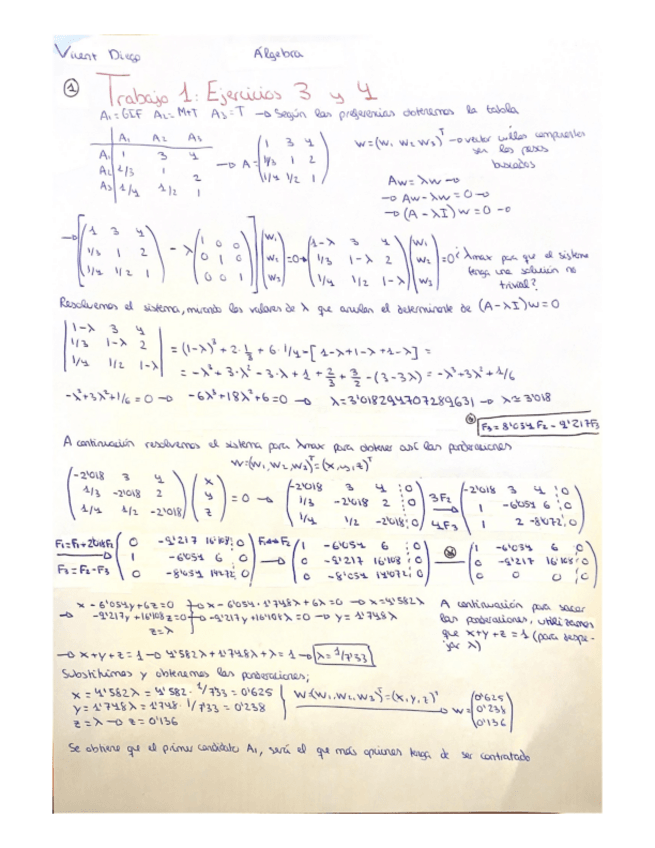 Vicent Diego Álgebra
① Trabajo 1: Ejercicios 3 y 4
A₁ = GIF A₂ = M+T A₃ = T → Según las preferencias obtenemos la tabla
A₁ A₂ A₃
A₁ 1 3 4
A₂ 1/3 1 2
A₃ 1/4 1/2 1
→ A = (1 3 4; 1/3 1 2; 1/4 1/2 1)
w = (w₁ w₂ w₃)ᵀ → vector cuyas componentes
ser los pesos
buscados
Aw = λw →
→ Aw - λw = 0 →
→ (A - λI)w = 0 →
→ [(1 3 4; 1/3 1 2; 1/4 1/2 1) - λ(1 0 0; 0 1 0; 0 0 1)](w₁; w₂; w₃) = 0 → (1-λ 3 4; 1/3 1-λ 2; 1/4 1/2 1-λ)(w₁; w₂; w₃) = 0 ¿λmax para que el sistema
tenga una solución no
trivial?
Resolvemos el sistema, mirando los valores de λ que anulan el determinante de (A-λI)w=0
|1-λ 3 4; 1/3 1-λ 2; 1/4 1/2 1-λ| = (1-λ)³ + 2·1/3 + 6·1/4 - [1-λ+1-λ+1-λ] =
= -λ³ + 3·λ² - 3·λ + 1 + 2/3 + 3/2 - (3-3λ) = -λ³+3λ²+1/6
-λ³+3λ²+1/6 = 0 → -6λ³+18λ²+6=0 → λ=3'018294707289631 → λ≃3'018
⊛ F₃ = 8'054F₂ - 9'217F₃
A continuación resolvemos el sistema para λmax para obtener así las ponderaciones
w=(w₁,w₂,w₃)ᵀ=(x,y,z)ᵀ
(-2'018 3 4; 1/3 -2'018 2; 1/4 1/2 -2'018)(x; y; z) = 0 → (-2'018 3 4 0; 1/3 -2'018 2 0; 1/4 1/2 -2'018 0) 3F₂ 4F₃ → (-2'018 3 4 0; 1 -6'054 6 0; 1 2 -8'072 0)
F₁=F₁+2'018F₂ F₃=F₂-F₃ → (0 -9'217 16'108 0; 1 -6'054 6 0; 0 -8'054 14'072 0) F₁↔F₂ → (1 -6'054 6 0; 0 -9'217 16'108 0; 0 -8'054 14'072 0) ⊛ → (1 -6'054 6 0; 0 -9'217 16'108 0; 0 0 0 0)
x - 6'054y + 6z = 0 → x - 6'054·1'748λ + 6λ = 0 → x = 4'582λ
→ -9'217y + 16'108z = 0 → -9'217y + 16'108λ = 0 → y = 1'748λ
z = λ
A continuación para sacar
las ponderaciones, utilizamos
que x+y+z = 1 (para despe-
jar λ)
→ x+y+z = 1 → 4'582λ+1'748λ+λ = 1 → λ = 1/7'33
Substituimos y obtenemos las ponderaciones;
x = 4'582λ = 4'582 · 1/7'33 = 0'625
y = 1'748λ = 1'748 · 1/7'33 = 0'238
z = λ → z = 0'136
w=(w₁,w₂,w₃)ᵀ=(x,y,z)ᵀ → w = (0'625; 0'238; 0'136)
Se obtiene que el primer candidato A₁, será el que más opciones tenga de ser contratado